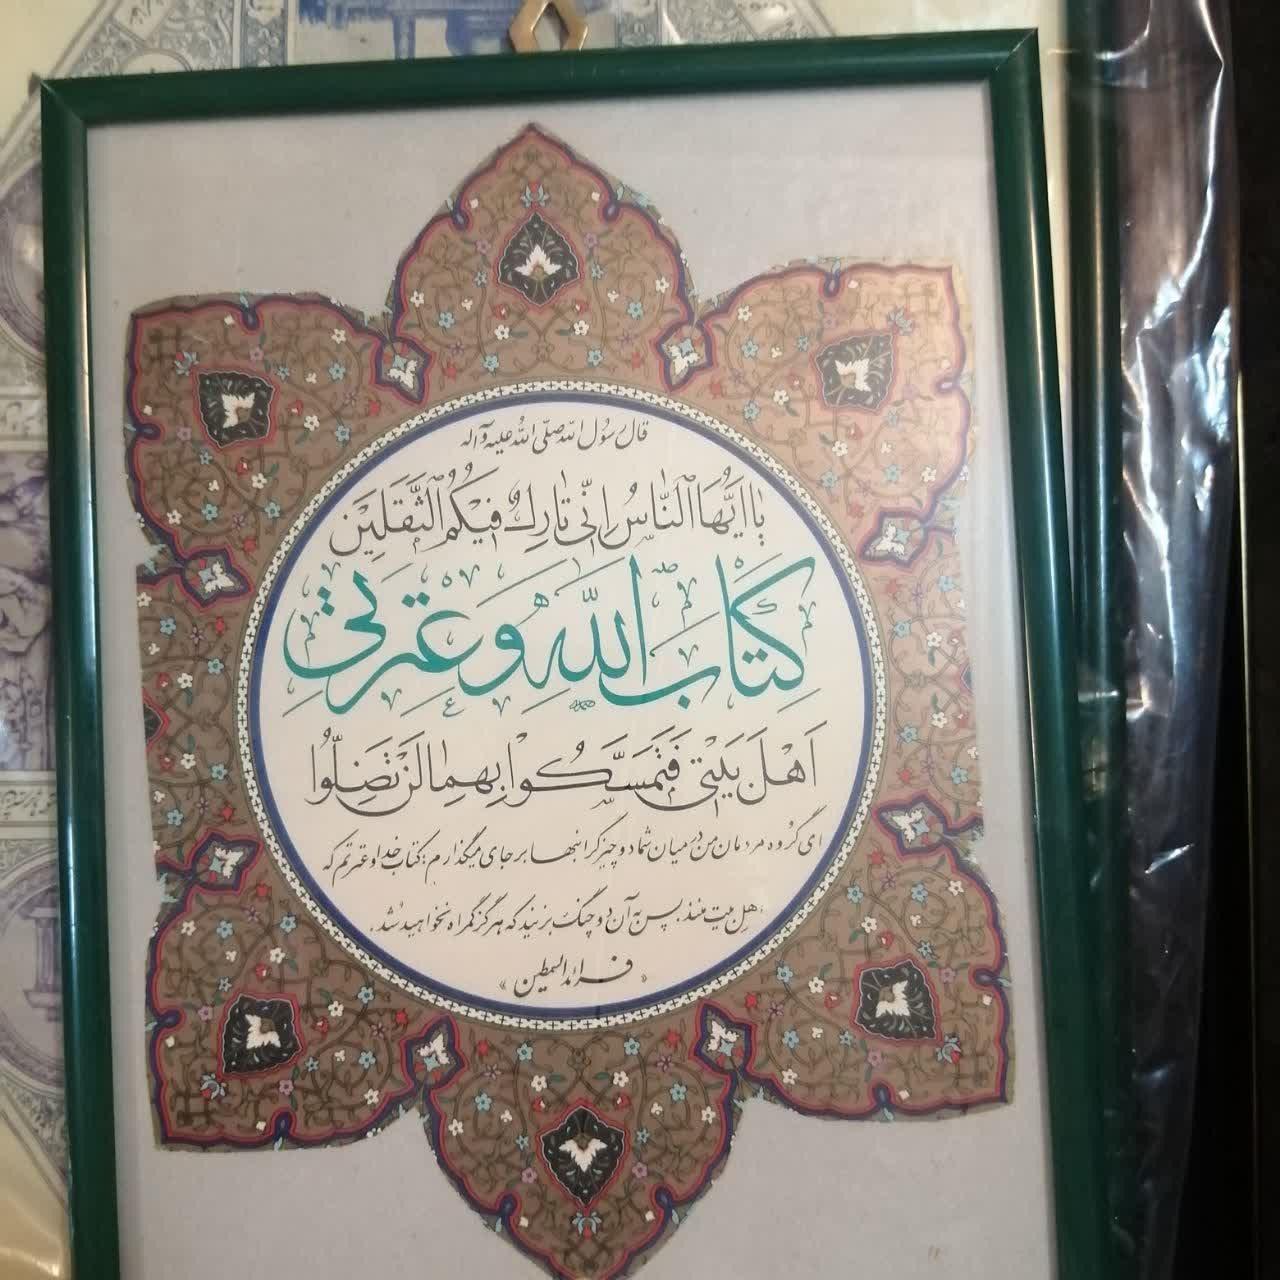 قال رسول الله صلی الله علیه وآله
یا ایها الناس انی تارک فیکم الثقلین
کتاب الله وعترتی
اهل بیتی فتمسکوا بهما لن تضلوا
ای گروه مردمان من در میان شما دو چیز گرانبها بر جای میگذارم: کتاب خدا و عترتم که
اهل بیت منند، پس به آن دو چنگ بزنید که هرگز گمراه نخواهید شد.
« فرائد السمطین »